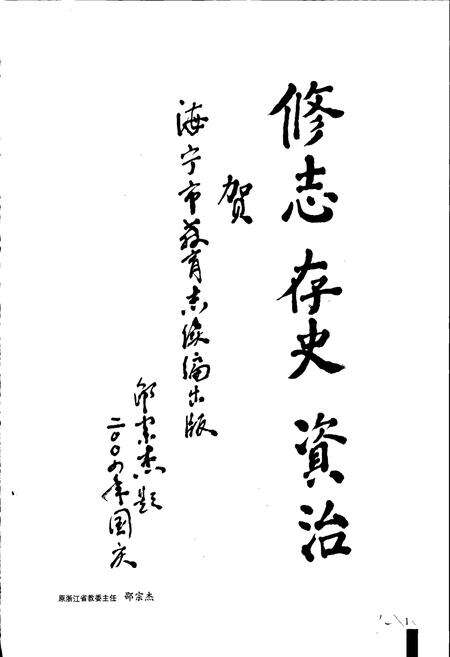 修志 存史 資治
贺
海宁市教育志续编出版
邵宗杰题
二〇〇四年国庆
原浙江省教委主任 邵宗杰